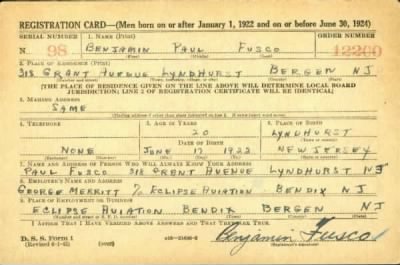 REGISTRATION CARD—(Men born on or after January 1, 1922 and on or before June 30, 1924)
SERIAL NUMBER 1. NAME (Print) ORDER NUMBER
N 98 BENJAMIN PAUL FUSCO 12200
2. PLACE OF RESIDENCE (Print)
318 GRANT AVENUE LYNDHURST BERGEN NJ
[THE PLACE OF RESIDENCE GIVEN ON THE LINE ABOVE WILL DETERMINE LOCAL BOARD
JURISDICTION; LINE 2 OF REGISTRATION CERTIFICATE WILL BE IDENTICAL]
3. MAILING ADDRESS
SAME
4. TELEPHONE 5. AGE IN YEARS 6. PLACE OF BIRTH
20 LYNDHURST
DATE OF BIRTH
NONE JUNE 17 1922 NEW JERSEY
7. NAME AND ADDRESS OF PERSON WHO WILL ALWAYS KNOW YOUR ADDRESS
PAUL FUSCO 318 GRANT AVENUE LYNDHURST NJ
8. EMPLOYER'S NAME AND ADDRESS
GEORGE MERRITT % ECLIPSE AVIATION BENDIX NJ
9. PLACE OF EMPLOYMENT OR BUSINESS
ECLIPSE AVIATION BENDIX BERGEN NJ
I AFFIRM THAT I HAVE VERIFIED ABOVE ANSWERS AND THAT THEY ARE TRUE.
D. S. S. Form 1 Benjamin Fusco
(over)